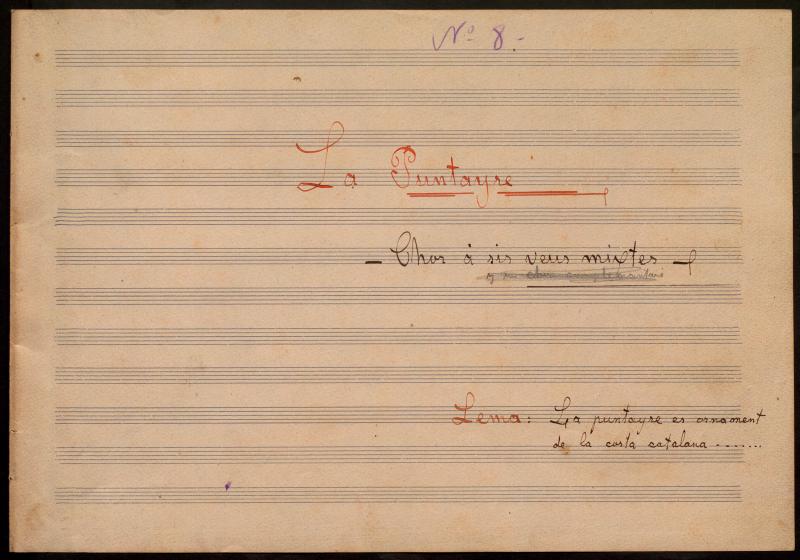 Nº 8-
La Puntayre
- Chor á sis veus mixtes -
Lema: La puntayre es ornament
de la costa catalana .......